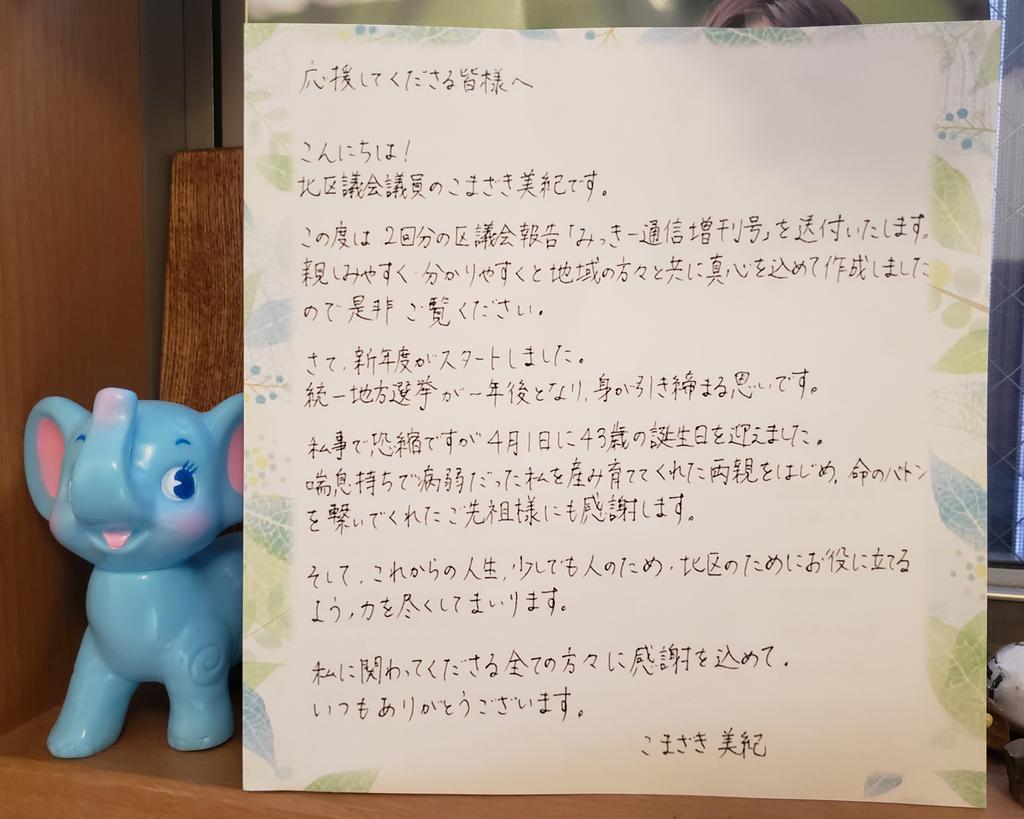 応援してくださる皆様へ
こんにちは!
北区議会議員のこまざき美紀です。
この度は2回分の区議会報告「みっきー通信増刊号」を送付いたします。
親しみやすく・分かりやすくと地域の方々と共に真心を込めて作成しました
ので是非ご覧ください。
さて、新年度がスタートしました。
統一地方選挙が一年後となり、身が引き締まる思いです。
私事で恐縮ですが4月1日に43歳の誕生日を迎えました。
喘息持ちで病弱だった私を産み育ててくれた両親をはじめ、命のバトン
を繋いでくれたご先祖様にも感謝します。
そして、これからの人生、少しでも人のため・北区のためにお役に立てる
よう、力を尽くしてまいります。
私に関わってくださる全ての方々に感謝を込めて。
いつもありがとうございます。
こまざき美紀